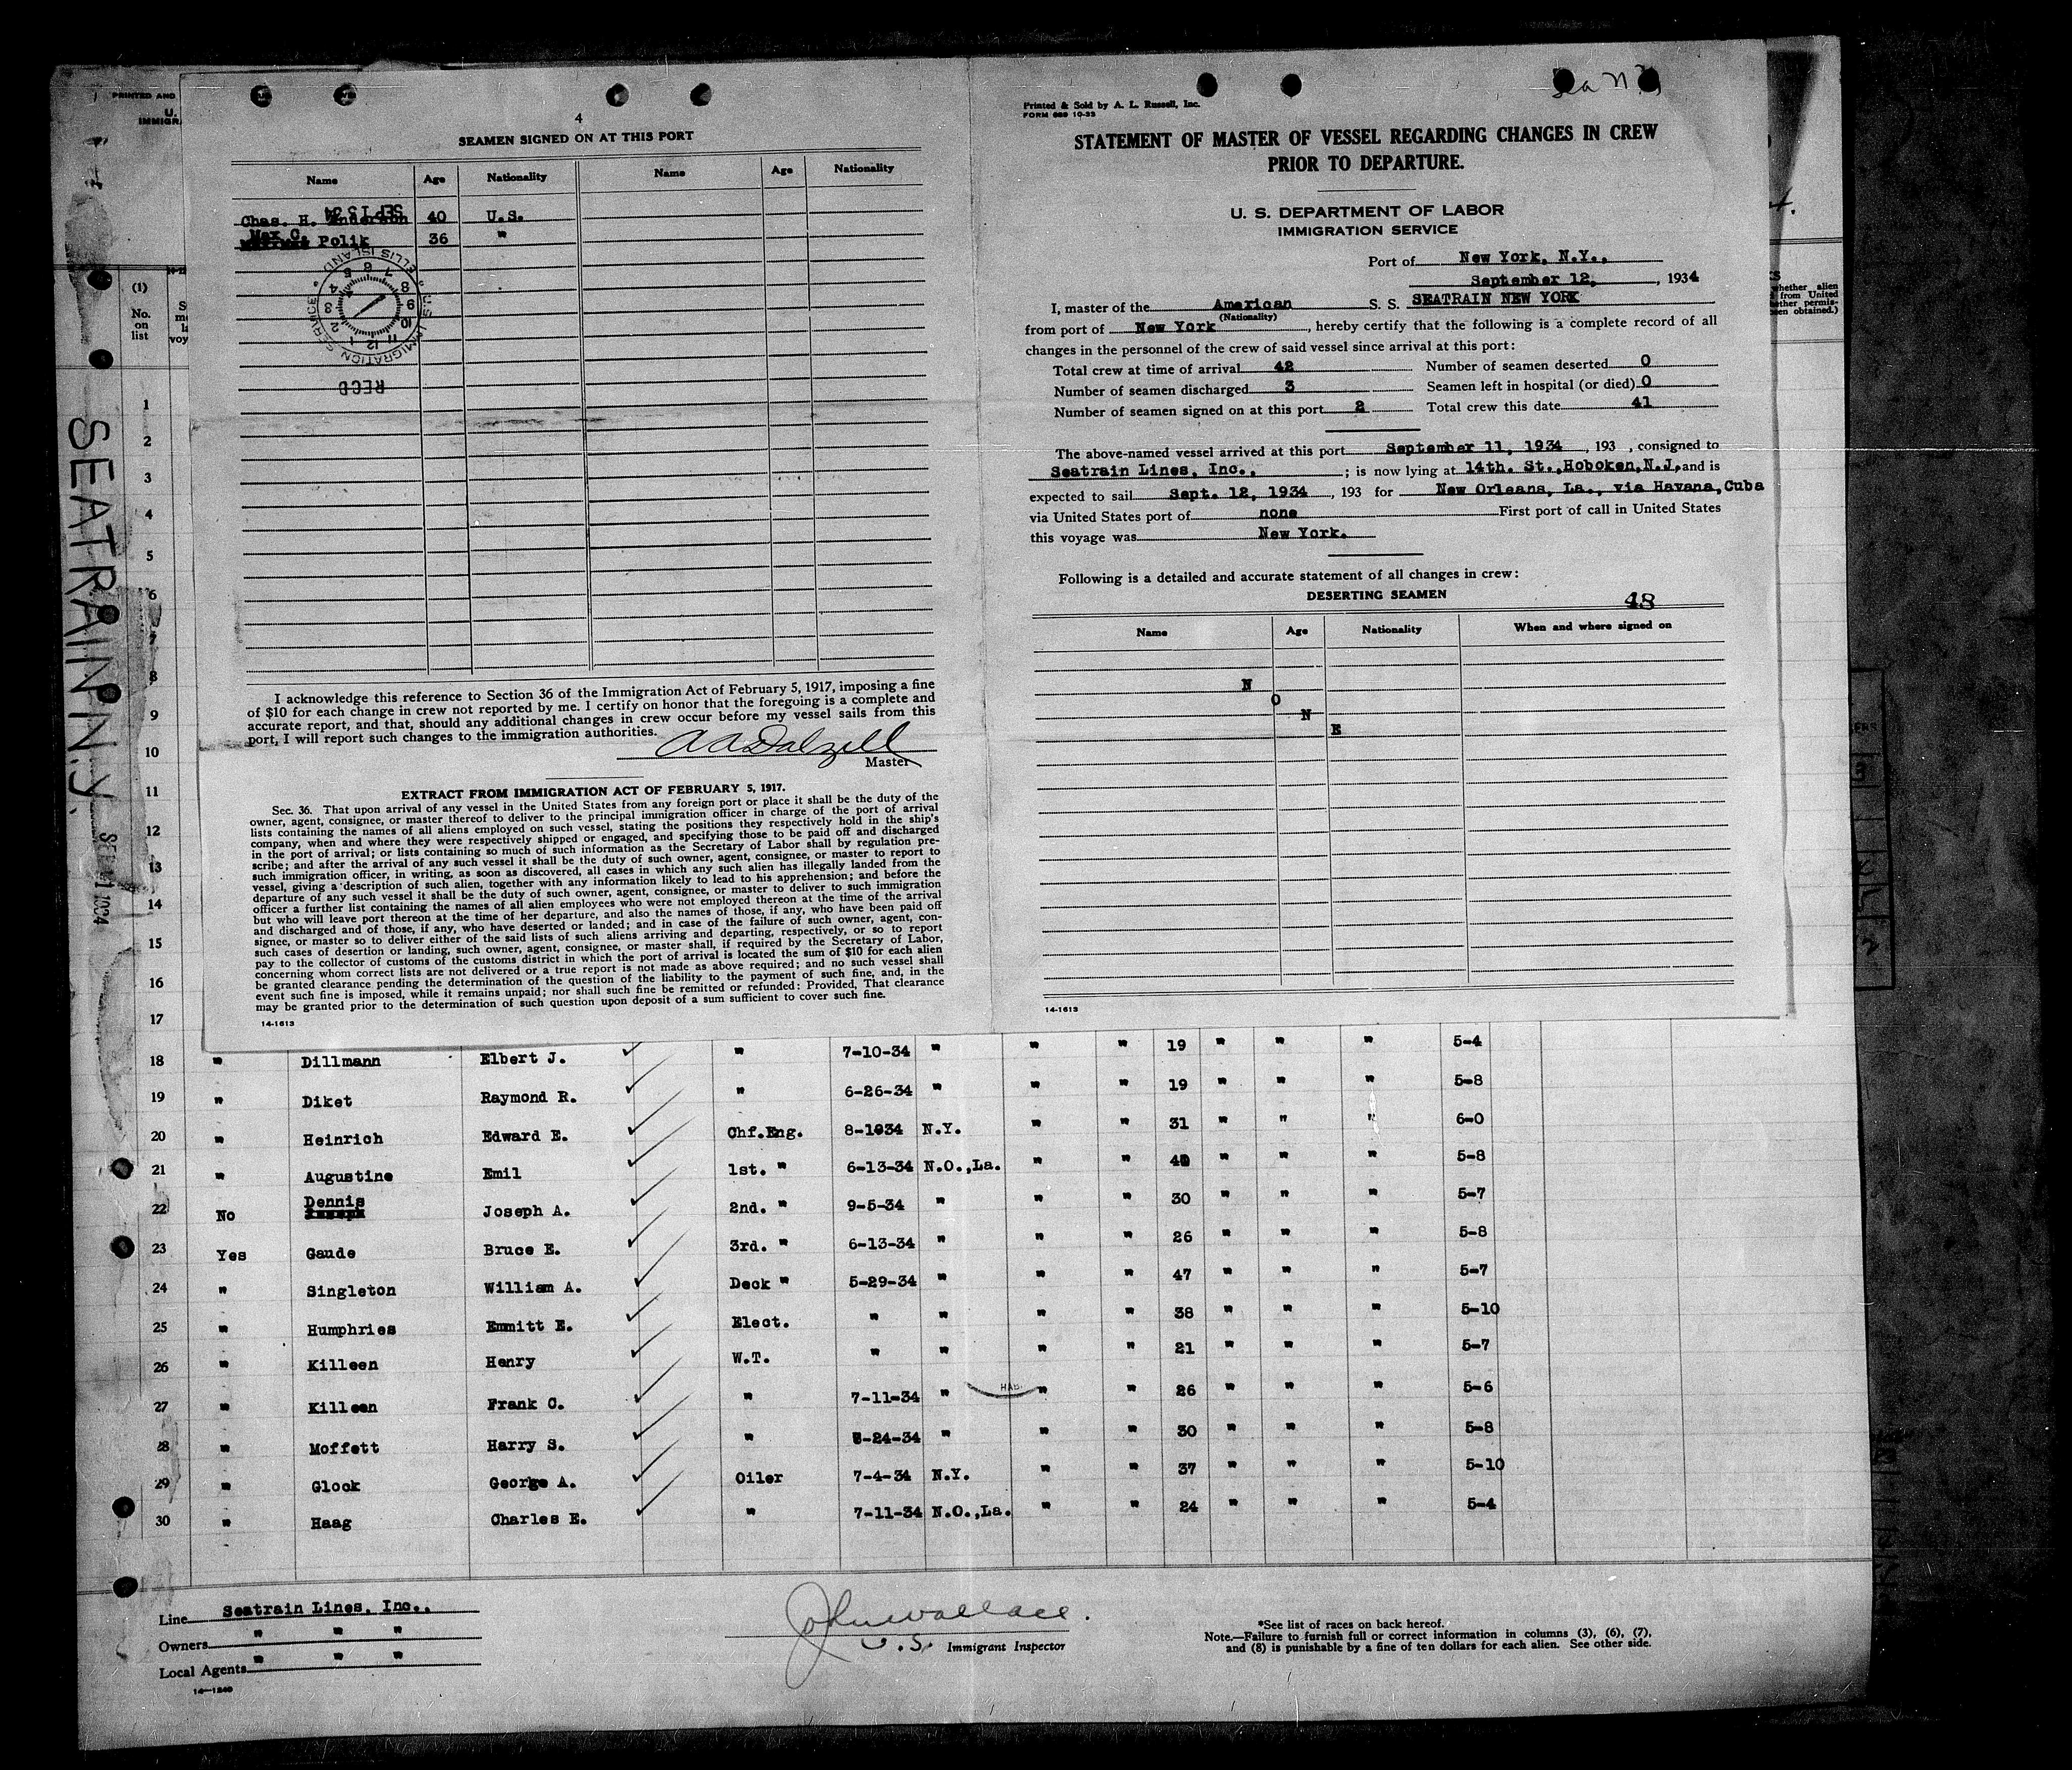 PRINTED AND
U.
IMMIGR
(1)
No.
on
list
SEATRAIN N.Y.
SEP 11 1934
4
SEAMEN SIGNED ON AT THIS PORT
Name Age Nationality Name Age Nationality
Chas. H. Anderson 40 U.S.
Max C. Polik 36 "
SEP 13 34
U.S. IMMIGRATION SERVICE ELLIS ISLAND
RECD
I acknowledge this reference to Section 36 of the Immigration Act of February 5, 1917, imposing a fine
of $10 for each change in crew not reported by me. I certify on honor that the foregoing is a complete and
accurate report, and that, should any additional changes in crew occur before my vessel sails from this
port, I will report such changes to the immigration authorities.
A A Dalzell
Master
EXTRACT FROM IMMIGRATION ACT OF FEBRUARY 5, 1917.
Sec. 36. That upon arrival of any vessel in the United States from any foreign port or place it shall be the duty of the
owner, agent, consignee, or master thereof to deliver to the principal immigration officer in charge of the port of arrival
lists containing the names of all aliens employed on such vessel, stating the positions they respectively hold in the ship's
company, when and where they were respectively shipped or engaged, and specifying those to be paid off and discharged
in the port of arrival; or lists containing so much of such information as the Secretary of Labor shall by regulation pre-
scribe; and after the arrival of any such vessel it shall be the duty of such owner, agent, consignee, or master to report to
such immigration officer, in writing, as soon as discovered, all cases in which any such alien has illegally landed from the
vessel, giving a description of such alien, together with any information likely to lead to his apprehension; and before the
departure of any such vessel it shall be the duty of such owner, agent, consignee, or master to deliver to such immigration
officer a further list containing the names of all alien employees who were not employed thereon at the time of the arrival
but who will leave port thereon at the time of her departure, and also the names of those, if any, who have been paid off
and discharged and of those, if any, who have deserted or landed; and in case of the failure of such owner, agent, con-
signee, or master so to deliver either of the said lists of such aliens arriving and departing, respectively, or so to report
such cases of desertion or landing, such owner, agent, consignee, or master shall, if required by the Secretary of Labor,
pay to the collector of customs of the customs district in which the port of arrival is located the sum of $10 for each alien
concerning whom correct lists are not delivered or a true report is not made as above required; and no such vessel shall
be granted clearance pending the determination of the question of the liability to the payment of such fine, and, in the
event such fine is imposed, while it remains unpaid; nor shall such fine be remitted or refunded: Provided, That clearance
may be granted prior to the determination of such question upon deposit of a sum sufficient to cover such fine.
14-1613
Sea N.Y.
Printed & Sold by A. L. Russell, Inc.
FORM 689 10-33
STATEMENT OF MASTER OF VESSEL REGARDING CHANGES IN CREW
PRIOR TO DEPARTURE.
U. S. DEPARTMENT OF LABOR
IMMIGRATION SERVICE
Port of New York, N.Y.,
September 12, , 1934
I, master of the American S. S. SEATRAIN NEW YORK
(Nationality)
from port of New York , hereby certify that the following is a complete record of all
changes in the personnel of the crew of said vessel since arrival at this port:
Total crew at time of arrival 42 Number of seamen deserted 0
Number of seamen discharged 3 Seamen left in hospital (or died) 0
Number of seamen signed on at this port 2 Total crew this date 41
The above-named vessel arrived at this port September 11, 1934 , 193 , consigned to
Seatrain Lines, Inc., ; is now lying at 14th. St.,Hoboken,N.J, and is
expected to sail Sept. 12, 1934 , 193 for New Orleans, La., via Havana, Cuba
via United States port of none First port of call in United States
this voyage was New York.
Following is a detailed and accurate statement of all changes in crew:
DESERTING SEAMEN
48
Name Age Nationality When and where signed on
N
O
N
E
14-1613
whether alien
from United
ether permis-
been obtained.)
1
2
3
4
5
6
7
8
9
10
11
12
13
14
15
16
17
18 " Dillmann Elbert J. " 7-10-34 " " " 19 " " " 5-4
19 " Diket Raymond R. " 6-26-34 " " " 19 " " " 5-8
20 " Heinrich Edward E. Chf.Eng. 8-1934 N.Y. " " 31 " " " 6-0
21 " Augustine Emil 1st. " 6-13-34 N.O.,La. " " " " " 5-8
22 No Dennis Joseph A. 2nd. " 9-5-34 " " " 30 " " " 5-7
23 Yes Gaude Bruce E. 3rd. " 6-13-34 " " " 26 " " " 5-8
24 " Singleton William A. Deck " 5-29-34 " " " 47 " " " 5-7
25 " Humphries Emmitt E. Elect. " " " " 38 " " " 5-10
26 " Killeen Henry W.T. " " " " 21 " " " 5-7
27 " Killeen Frank C. " 7-11-34 " " " 26 " " " 5-6
28 " Moffett Harry S. " -24-34 " " " 30 " " " 5-8
29 " Glock George A. Oiler 7-4-34 N.Y. " " 37 " " " 5-10
30 " Haag Charles E. " 7-11-34 N.O.,La. " " 24 " " " 5-4
Line Seatrain Lines, Inc.,
Owners " " "
Local Agents " " "
14-1240
John Wallace.
U.S. Immigrant Inspector
*See list of races on back hereof.
Note.—Failure to furnish full or correct information in columns (3), (6), (7),
and (8) is punishable by a fine of ten dollars for each alien. See other side.